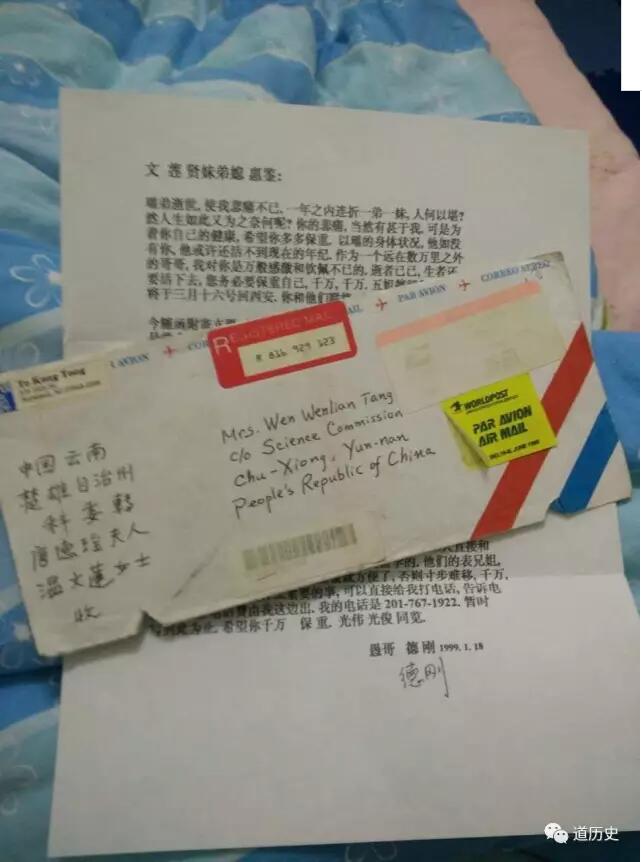 文莲贤妹弟媳惠鉴:
弟逝世, 使我悲痛不已, 一年之内连折一弟一妹, 人何以堪?
然人生如此又为之奈何呢? 你的悲痛, 当然有甚于我, 可是为
着你自己的健康, 希望你多多保重, 以 的身体状况, 他如没
有你, 他或许还活不到现在的年纪. 作为一个远在数万里之外
的哥哥, 我对你是万般感激和钦佩不已的. 逝者已已, 生者还
要活下去, 您务必要保重自己, 千万, 千万. 五姐
将于三月十六号回西安, 你和他们
今随函附
AVION
COR
AIL
PAR AVION
CORREO AEREO
REGISTERED MAIL
R 816 929 123
Te Kong Tong
WORLDPOST
PAR AVION
AIR MAIL
Mrs. Wen Wenlian Tang
c/o Science Commission
Chu-Xiong, Yun-nan
People's Republic of China
中国云南
楚雄自治州
科委轉
唐德 夫人
温文蓮女士
收
直接和
的. 他们的表兄姐,
方便了, 否则寸步难移, 千万,
重要的事, 可以直接给我打电话, 告诉电
费由我这边出. 我的电话是 201-767-1922. 暂时
到此为止. 希望你千万 保重. 光伟光俊同览.
愚哥 德刚 1999. 1. 18
德刚
道历史